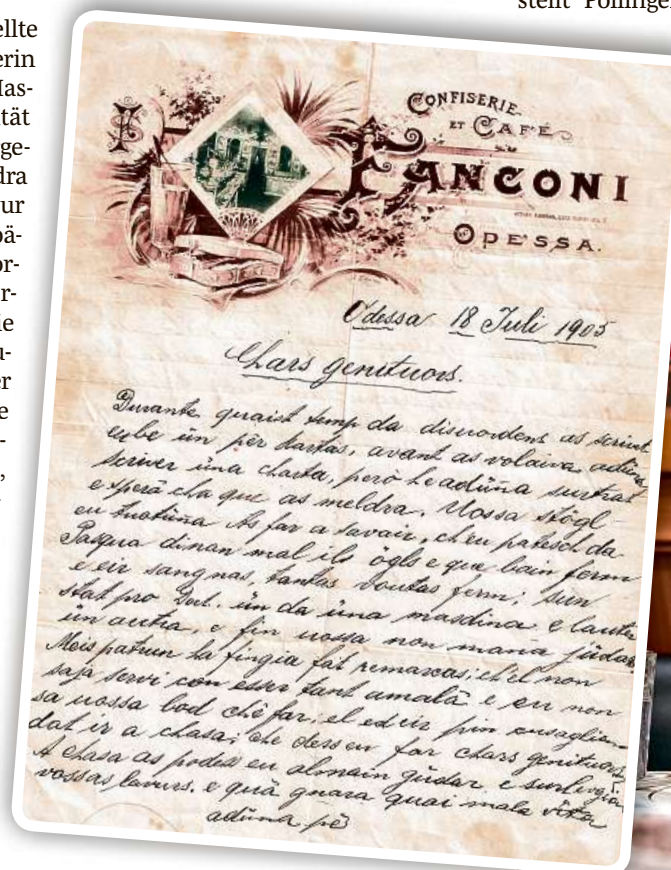 stellt Pollinger
ellte
erin
Has-
tät
ge-
dra
ur
pä-
or-
er-
ie
u-
er
e
-
,
CONFISERIE
ET CAFÉ
FANCONI
ODESSA.
Odessa 18 Juli 1905
Chars genituors.
Durante quaist temp da disuordens as scrivet
eube ün per cartas, avant as volaiva adüna
scriver üna charta, però he adüna surtrat
e sperà cha que as meldra. Uossa stögl
eu tuotüna As far a savair, ch'eu patesch da
Pasqua dinan mal ils ögls e que bain ferm
e eir sangnas, tantas voutas ferm; sun
stat pro Dot. ün da üna masdina e l'auter
ün autra, e fin uossa non m'ana jüdà.
Meis patrun ha fingià fat remarcas; ch'el non
saja servi con esser tant amalà e eu non
sa uossa bod che far; el ed eir pin cusaglian
dat ir a chasa; che dess eu far chars genituors
A chasa as podess eu almain güdar e surlevgiar
vossas lavurs. e quà guara quai mala vita
adüna pès